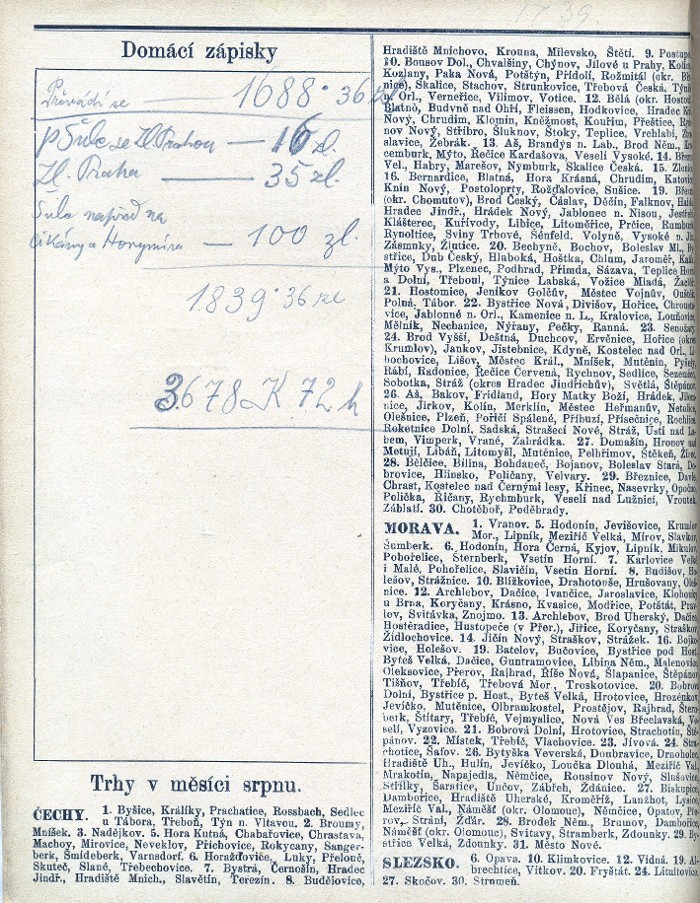 Domácí zápisky
Převádí se — 1688·36 zl
p Šulc ze Zl. Prahou — 16 zl.
Zl. Praha — 35 zl.
Šulc napřed na
cikány a Horymíra — 100 zl.
1839·36 zl
3.678 K 72 h
Trhy v měsíci srpnu.
ČECHY. 1. Byšice, Králíky, Prachatice, Rossbach, Sedlec
u Tábora, Třeboň, Týn n. Vltavou. 2. Broumy,
Mníšek. 3. Nadějkov. 5. Hora Kutná, Chabařovice, Chrastava,
Machov, Mirovice, Neveklov, Přichovice, Rokycany, Sanger-
berk, Šmideberk, Varnsdorf. 6. Horažďovice, Luky, Přelouč,
Skuteč, Slané, Třebechovice. 7. Bystrá, Černošín, Hradec
Jindř., Hradiště Mnich., Slavětín, Terezín. 8. Budějovice,
Hradiště Mnichovo, Krouna, Milevsko, Štětí. 9. Postup
10. Bousov Dol., Chvalšiny, Chýnov, Jílové u Prahy,
Kozlany, Paka Nová, Potštýn, Přídolí, Rožmitál (okr.
Skalice, Stachov, Strunkovice, Třebová Česká, Týn
Orl., Verneřice, Vilimov, Votice. 12. Bělá (okr.
Blatno, Budyně nad Ohří, Fleissen, Hodkovice, Hradec
Nový, Chrudim, Klomín, Kněžmost, Kouřim, Přeštice,
nov Nový, Stříbro, Šluknov, Štoky, Teplice, Vrchlabí,
slavice, Žebrák. 13. Aš, Brandýs n. Lab., Brod Něm.,
cemburk, Mýto, Řečice Kardašova, Veselí Vysoké. 14.
Vel., Habry, Marešov, Nymburk, Skalice Česká. 15.
16. Bernardice, Blatná, Hora Krásná, Chrudim,
Knín Nový, Postoloprty, Rožďalovice, Sušice. 19.
(okr. Chomutov), Brod Český, Čáslav, Děčín, Falknov,
Hradec Jindř., Hrádek Nový, Jablonec n. Nisou,
Klášterec, Kuřívody, Libice, Litoměřice, Prčice,
Rynoltice, Sviny Trhové, Šénfeld, Volyně, Vysoké n.
Zásmuky, Žlutice. 20. Bechyně, Bochov, Boleslav Ml.,
střice, Dub Český, Hluboká, Hoštka, Chlum, Jaroměř,
Mýto Vys., Plzenec, Podhrad, Přimda, Sázava, Teplice
a Dolní, Třeboul, Týnice Labská, Vožice Mladá,
21. Hostomice, Jeníkov Golčův, Městec Vojnův,
Polná, Tábor. 22. Bystřice Nová, Divišov, Hořice,
vice, Jablonné n. Orl., Kamenice n. L., Kralovice,
Mělník, Nechanice, Nýřany, Pečky, Ranná. 23.
24. Brod Vyšší, Deštná, Duchcov, Ervěnice, Hořice
Krumlov), Jankov, Jistebnice, Kdyně, Kostelec nad Orl.,
bochovice, Lišov, Městec Král., Mníšek, Mutěnín,
Rábí, Radonice, Řečice Červená, Rychnov, Sedlice,
Sobotka, Stráž (okres Hradec Jindřichův), Světlá,
26. Aš, Bakov, Fridland, Hory Matky Boží, Hrádek,
nice, Jirkov, Kolín, Merklín, Městec Heřmanův,
Olešnice, Plzeň, Poříčí Spálené, Příbuzí, Přísečnice,
Roketnice Dolní, Sadská, Strašecí Nové, Stráž, Ústí nad
bem, Vimperk, Vrané, Zabrádka. 27. Domašín, Hronov
Metují, Libáň, Litomyšl, Mutěnice, Pelhřimov, Štěkeň,
28. Bělčice, Bilina, Bohdaneč, Bojanov, Boleslav Stará,
brovice, Hlinsko, Poličany, Velvary. 29. Březnice,
Chrast, Kostelec nad Černými lesy, Křinec, Nasevrky,
Polička, Říčany, Rychmburk, Veselí nad Lužnicí,
Záblatí. 30. Chotěboř, Poděbrady.
MORAVA. 1. Vranov. 5. Hodonín, Jevišovice,
Mor., Lipník, Meziříč Velká, Mírov,
Šumberk. 6. Hodonín, Hora Černá, Kyjov, Lipník,
Pohořelice, Šternberk, Vsetín Horní. 7. Karlovice
i Malé, Pohořelice, Slavičín, Vsetín Horní. 8. Budišov,
lešov, Strážnice. 10. Blížkovice, Drahotouše, Hrušovany,
nice. 12. Archlebov, Dačice, Ivančice, Jaroslavice,
u Brna, Koryčany, Krásno, Kvasice, Modřice, Potštát,
lov, Svitávka, Znojmo. 13. Archlebov, Brod Uherský,
Hostěradice, Hustopeče (v Přer.), Jiřice, Koryčany,
Židlochovice. 14. Jičín Nový, Straškov, Strážek. 16.
vice, Holešov. 19. Batelov, Bučovice, Bystřice pod
Byteš Velká, Dačice, Guntramovice, Libina Něm.,
Oleksovice, Přerov, Rajhrad, Říše Nová, Šlapanice,
Tišňov, Třebíč, Třebová Mor., Troskotovice. 20.
Dolní, Bystřice p. Host., Byteš Velká, Hrotovice,
Jevíčko, Mutěnice, Olbramkostel, Prostějov, Rajhrad,
berk, Štítary, Třebíč, Vejmyslice, Nová Ves Břeclavská,
selí, Vyzovice. 21. Bobrová Dolní, Hrotovice, Strachotín,
pánov. 22. Místek, Třebíč, Vlachovice. 23. Jívová. 24.
chotice, Šafov. 26. Bytyška Veverská, Doubravice,
Hradiště Uh., Hulín, Jevíčko, Loučka Dlouhá, Meziříč
Mrakotín, Napajedla, Němčice, Rousinov Nový,
Stříłky, Šaratice, Unčov, Zábřeh, Ždánice. 27.
Dambořice, Hradiště Uherské, Kroměříž, Lanžhot,
Meziříč Val., Náměšť (okr. Olomouc), Němčice, Opatov,
rov, Strání, Žďár. 28. Brodek Něm., Brumov,
Náměšť (okr. Olomouc), Svitavy, Stramberk, Zdounky. 29.
střice Velká, Zdounky. 31. Město Nové.
SLEZSKO. 6. Opava. 10. Klimkovice. 12. Vidná. 19.
brechtice, Vítkov. 20. Fryštát. 24.
27. Skočov. 30. Strumeň.